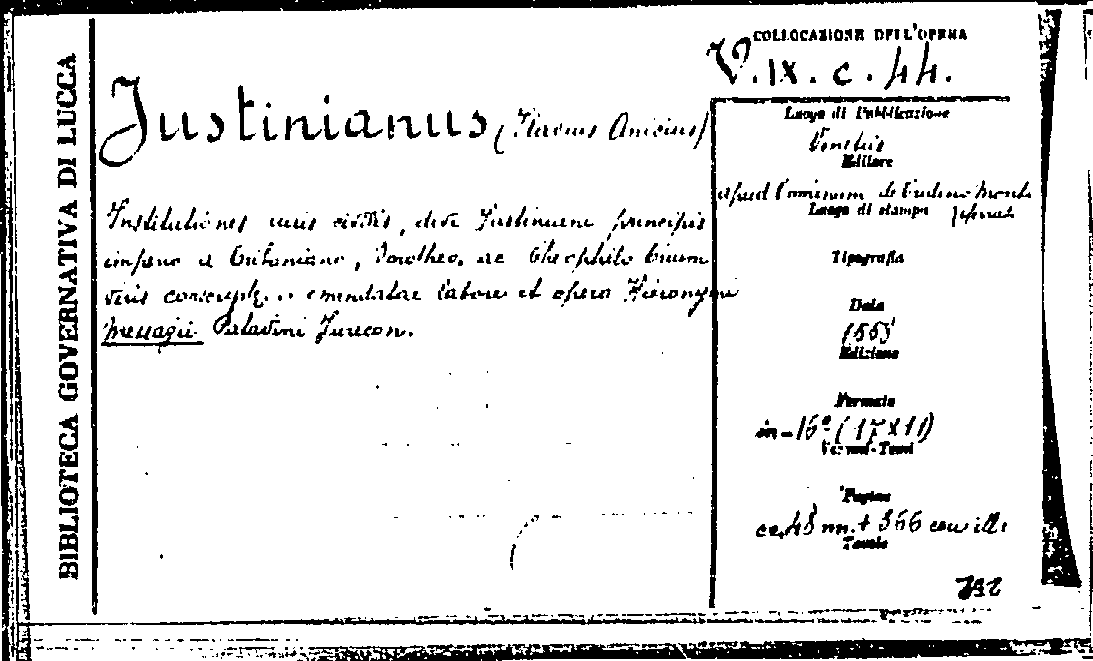 BIBLIOTECA GOVERNATIVA DI LUCCA
COLLOCAZIONE DELL'OPERA
V. IX. c. 44.
Justinianus (Flavius Anicius)
Institutiones iuris civilis, divi Justiniani principis
imperio a Triboniano, Dorotheo, ac Theophilo trium
viris conscript. .. emendatae labore et opera Hieronymi
Messagii Paladini Jurecon.
Luogo di Pubblicazione
Venetiis
Editore
apud Cominum de Tridino Montis
ferrati
Luogo di stampa
Tipografia
Data
Edizione
Formato
in-16º (17x11)
Volumi-Tomi
Pagine
cc. 48 nn. + 366 con ill.
Tavole